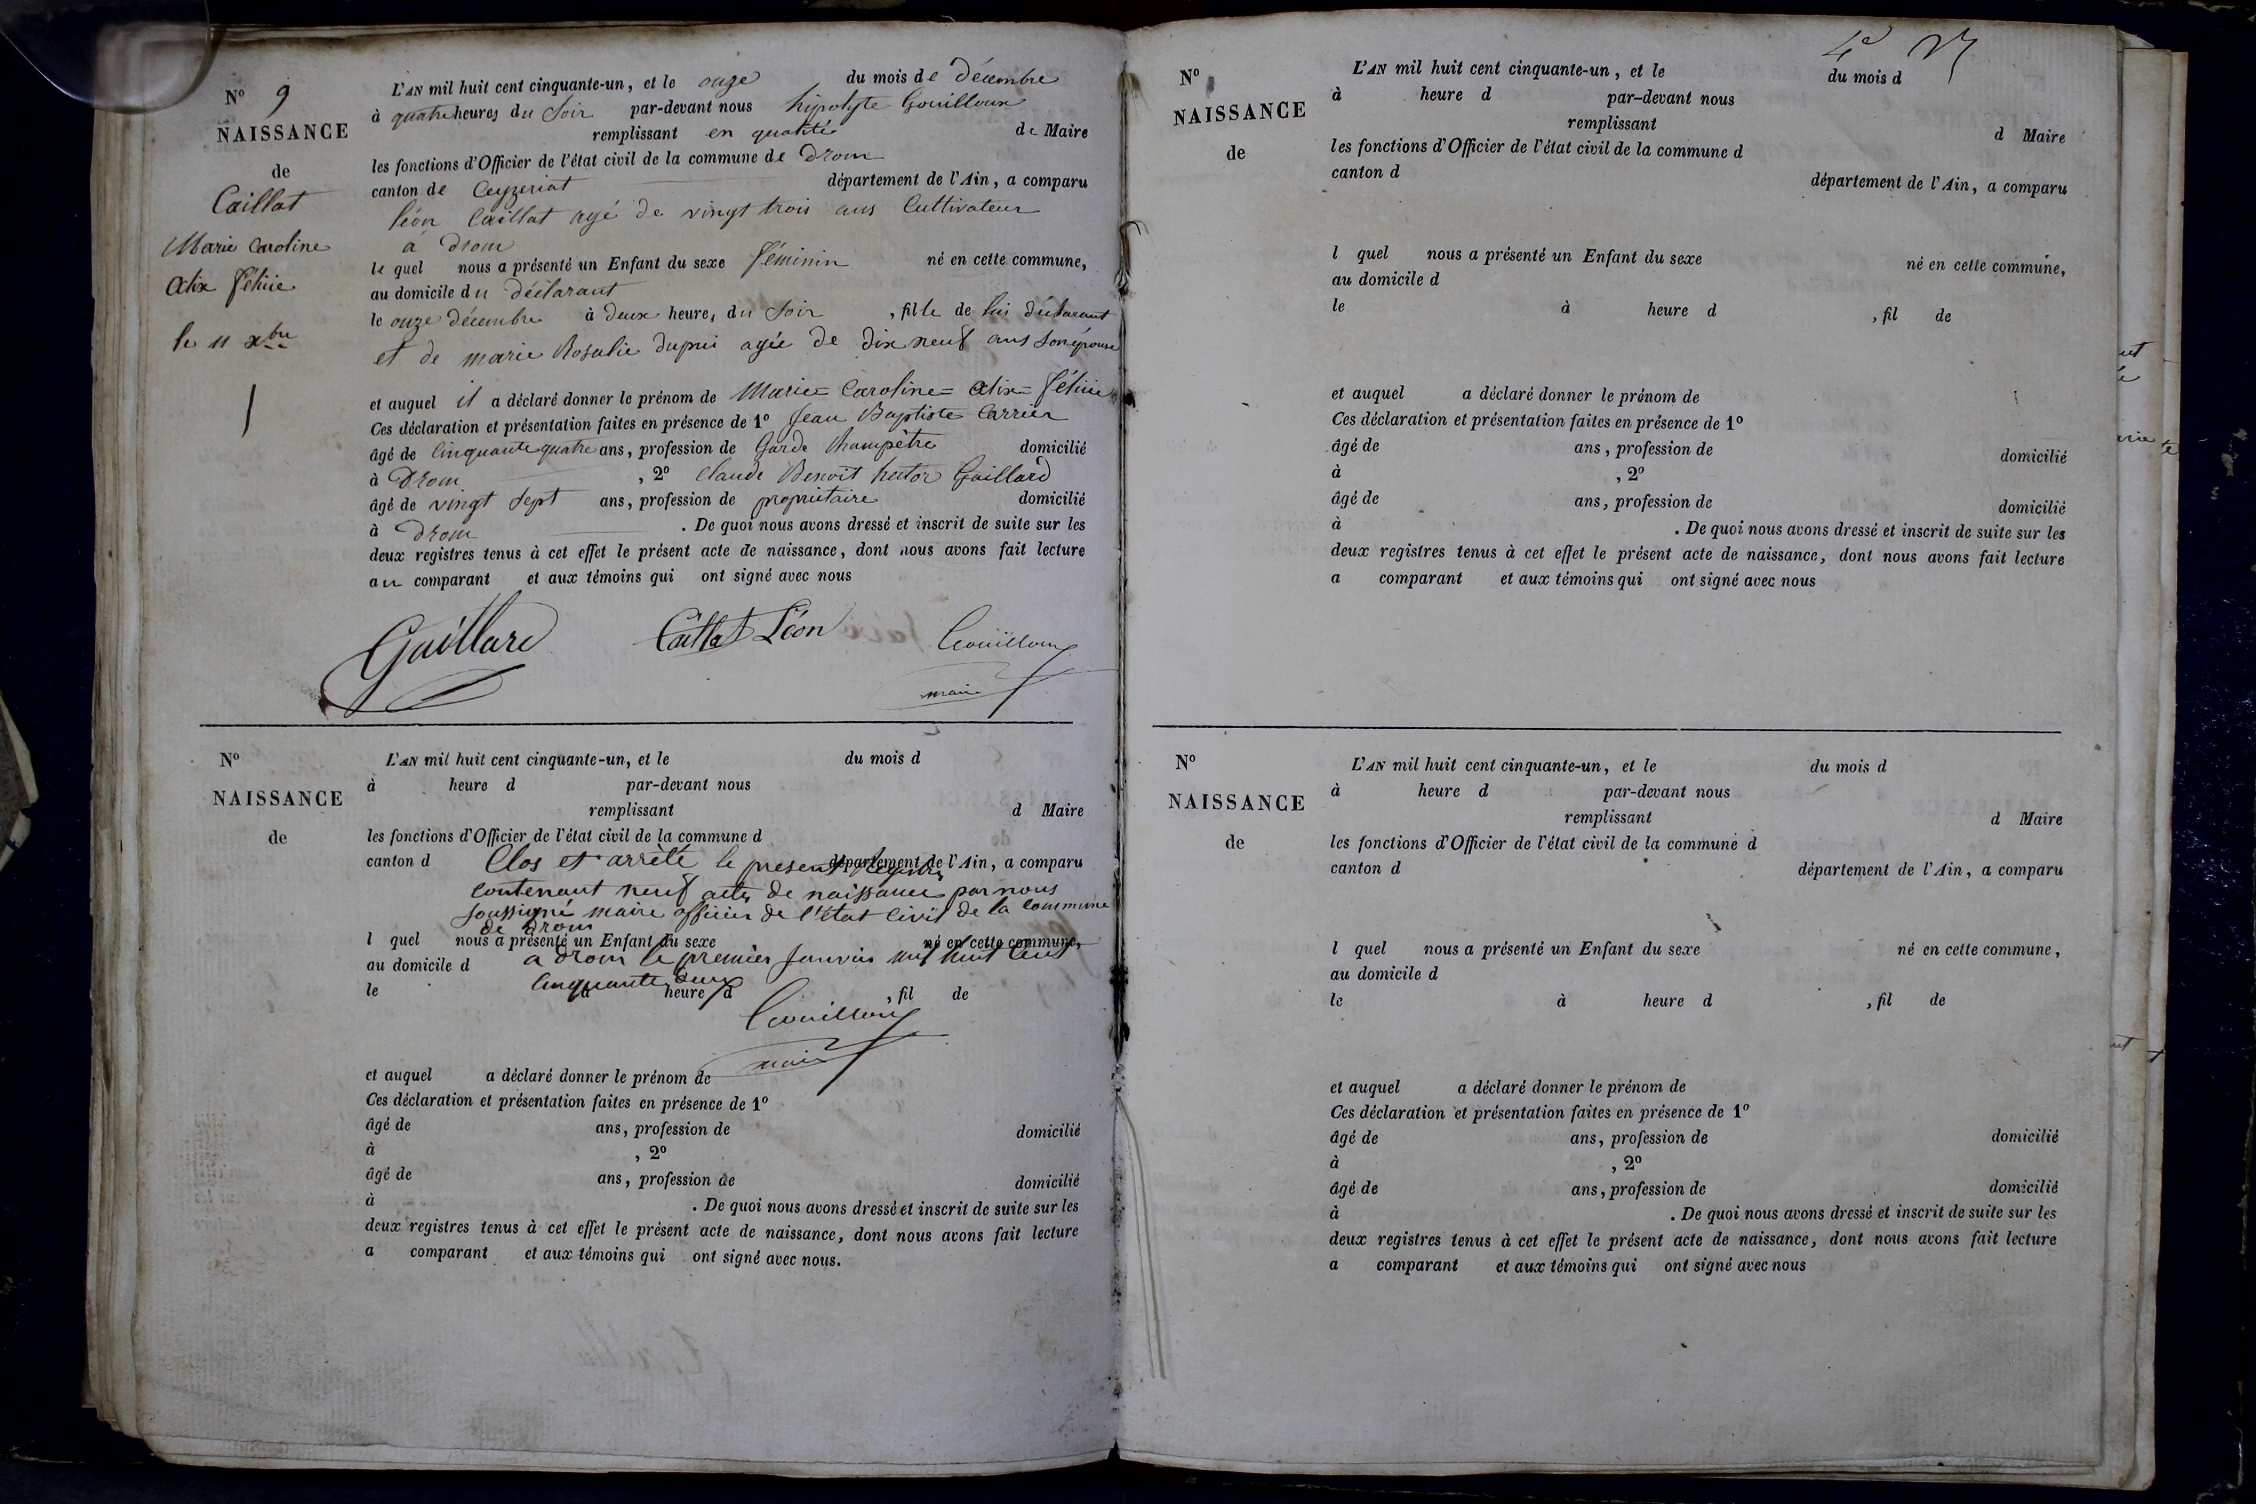 N° 9
NAISSANCE
de
Caillat
Marie Caroline
Alix Félicie
le 11 xbre
L'AN mil huit cent cinquante-un, et le onze du mois de décembre
à quatre heures du soir par-devant nous hipolyte Gouilloux
remplissant en qualité de Maire
les fonctions d'Officier de l'état civil de la commune de Drom
canton de Ceyzeriat département de l'Ain, a comparu
léon Caillat agé de vingt trois ans Cultivateur
à Drom
le quel nous a présenté un Enfant du sexe féminin né en cette commune,
au domicile du déclarant
le onze décembre à deux heures du soir , fille de lui déclarant
et de marie Rosalie dupui agée de dix neuf ans son épouse
et auquel il a déclaré donner le prénom de Marie= Caroline= Alix= Félicie
Ces déclaration et présentation faites en présence de 1° Jean Baptiste Carrier
âgé de Cinquante quatre ans, profession de Garde Champêtre domicilié
à Drom , 2° Claude Benoit hector Gaillard
âgé de vingt sept ans, profession de propriétaire domicilié
à Drom . De quoi nous avons dressé et inscrit de suite sur les
deux registres tenus à cet effet le présent acte de naissance, dont nous avons fait lecture
au comparant et aux témoins qui ont signé avec nous
Gaillard Caillat Léon Gouilloux
maire
N°
NAISSANCE
de
L'AN mil huit cent cinquante-un, et le du mois d
à heure d par-devant nous
remplissant d Maire
les fonctions d'Officier de l'état civil de la commune d
canton d département de l'Ain, a comparu
Clos et arrêté le present Registre
contenant neuf actes de naissance par nous
soussigné maire officier de l'état Civil de la commune
de Drom
l quel nous a présenté un Enfant du sexe né en cette commune,
a Drom le premier Janvier mil huit cent
au domicile d
Cinquante deux
le à heure d , fil de
Gouilloux
maire
et auquel a déclaré donner le prénom de
Ces déclaration et présentation faites en présence de 1°
âgé de ans, profession de domicilié
à , 2°
âgé de ans, profession de domicilié
à . De quoi nous avons dressé et inscrit de suite sur les
deux registres tenus à cet effet le présent acte de naissance, dont nous avons fait lecture
a comparant et aux témoins qui ont signé avec nous.
N°
NAISSANCE
de
L'AN mil huit cent cinquante-un, et le du mois d
à heure d par-devant nous
remplissant d Maire
les fonctions d'Officier de l'état civil de la commune d
canton d département de l'Ain, a comparu
l quel nous a présenté un Enfant du sexe né en cette commune,
au domicile d
le à heure d , fil de
et auquel a déclaré donner le prénom de
Ces déclaration et présentation faites en présence de 1°
âgé de ans, profession de domicilié
à , 2°
âgé de ans, profession de domicilié
à . De quoi nous avons dressé et inscrit de suite sur les
deux registres tenus à cet effet le présent acte de naissance, dont nous avons fait lecture
a comparant et aux témoins qui ont signé avec nous
N°
NAISSANCE
de
L'AN mil huit cent cinquante-un, et le du mois d
à heure d par-devant nous
remplissant d Maire
les fonctions d'Officier de l'état civil de la commune d
canton d département de l'Ain, a comparu
l quel nous a présenté un Enfant du sexe né en cette commune,
au domicile d
le à heure d , fil de
et auquel a déclaré donner le prénom de
Ces déclaration et présentation faites en présence de 1°
âgé de ans, profession de domicilié
à , 2°
âgé de ans, profession de domicilié
à . De quoi nous avons dressé et inscrit de suite sur les
deux registres tenus à cet effet le présent acte de naissance, dont nous avons fait lecture
a comparant et aux témoins qui ont signé avec nous